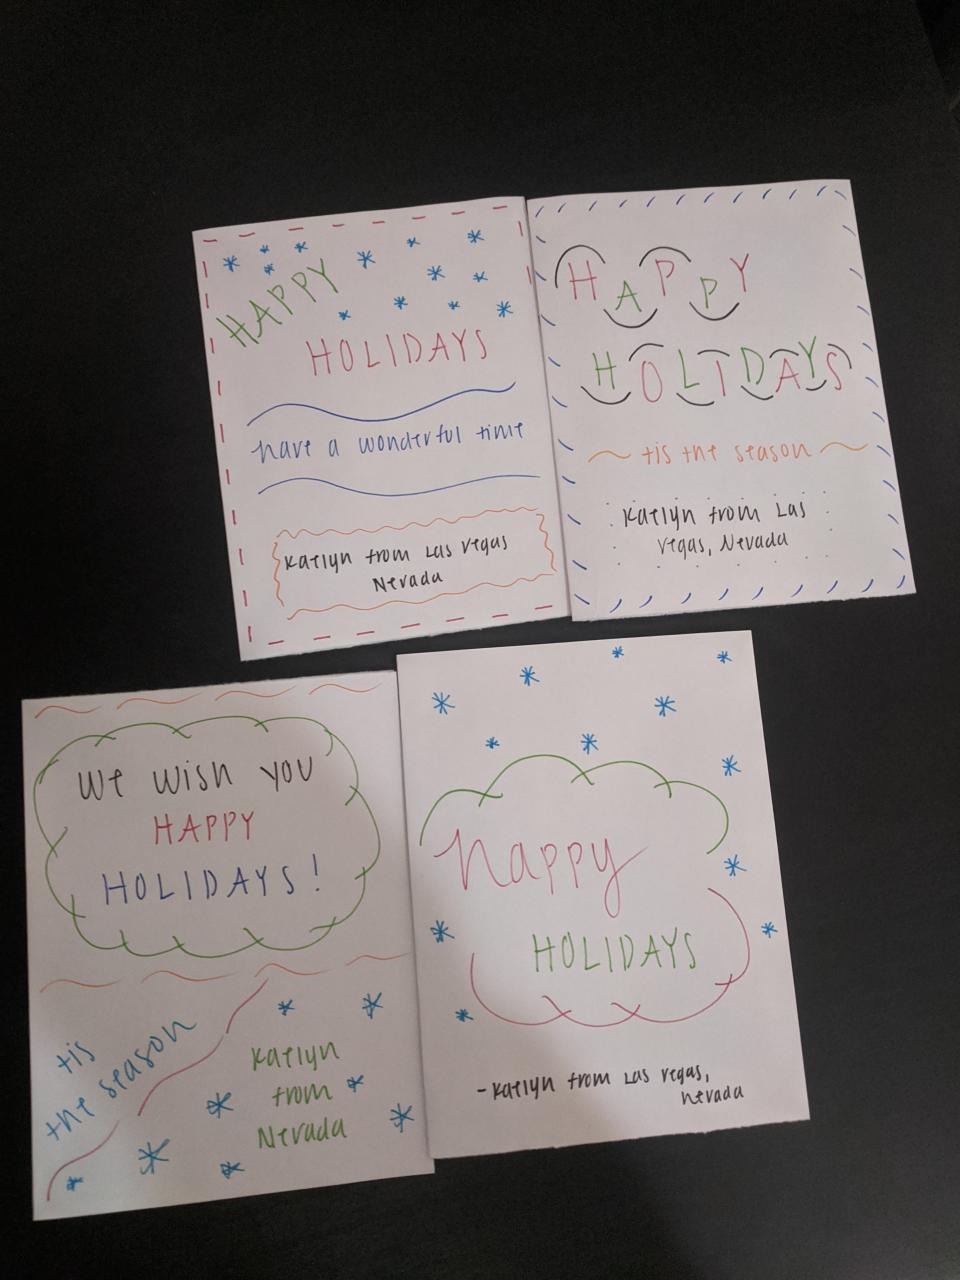 HAPPY
HOLIDAYS
have a wonderful time
Katlyn from Las Vegas
Nevada
HAPPY
HOLIDAYS
tis the season
Katlyn from Las
Vegas, Nevada
We wish you
HAPPY
HOLIDAYS!
tis
the season
Katlyn
from
Nevada
happy
HOLIDAYS
-Katlyn from Las Vegas,
nevada